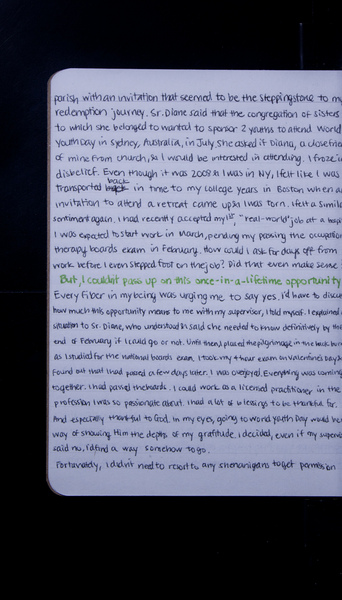 parish with an invitation that seemed to be the steppingstone to my
redemption journey. Sr. Diane said that the congregation of sisters
to which she belonged to wanted to sponsor 2 youths to attend World
Youth Day in Sydney, Australia, in July. She asked if Diana, a close frie
of mine from church, & I would be interested in attending. I froze in
disbelief. Even though it was 2008 & I was in NY, I felt like I was
transported back in time to my college years in Boston when a
invitation to attend a retreat came up & I was torn. I felt a simila
sentiment again. I had recently accepted my 1st, "real-world" job at a hosp
I was expected to start work in March, pending my passing the occupation
therapy boards exam in February. How could I ask for days off from
work before I even stepped foot on the job? Did that even make sense
But, I couldn't pass up on this once-in-a-lifetime opportunity
Every fiber in my being was urging me to say yes. I'd have to discu
how much this opportunity means to me with my supervisor, I told myself. I explained
situation to Sr. Diane, who understood & said she needed to know definitively by the
end of February if I could go or not. Until then, I placed the pilgrimage in the back
as I studied for the national boards exam. I took my 4 hour exam on Valentine's Day &
found out that I had passed a few days later. I was overjoyed. Everything was coming
together. I had passed the boards. I could work as a licensed practitioner in the
profession I was so passionate about. I had a lot of blessings to be thankful for.
And especially thankful to God. In my eyes, going to World Youth Day would be
way of showing Him the depths of my gratitude. I decided, even if my supervi
said no, I'd find a way somehow to go.
Fortunately, I didn't need to resort to any shenanigans to get permission